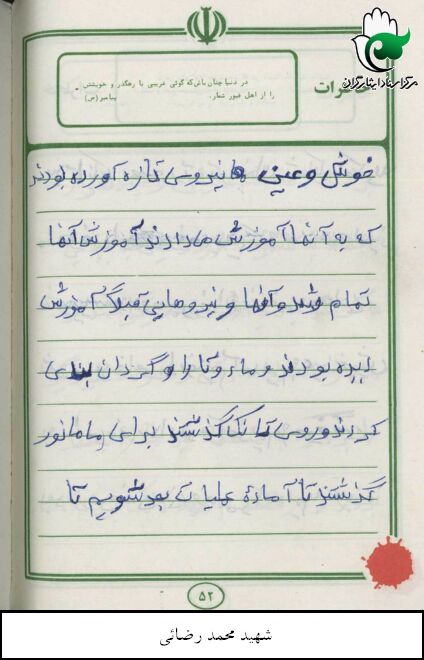 مرکز اسناد ایثارگران
خاطرات
در دنیا چنان باش که گوئی غریبی یا رهگذر و خویشتن
را از اهل قبور شمار. پیامبر(ص)
خوش وعین نیروی تازه آورده بودند
که به آنها آموزش دادند آموزش آنها
تمام شد و آنها و نیروهایی قبلاً آموزش
دیده بودند و ما را گردان بندی
کردند و روی تانک گذشتند برای مانور
گذشتند تا آمادهٔ عملیات بعد شویم تا
۵۲
شهید محمد رضائی